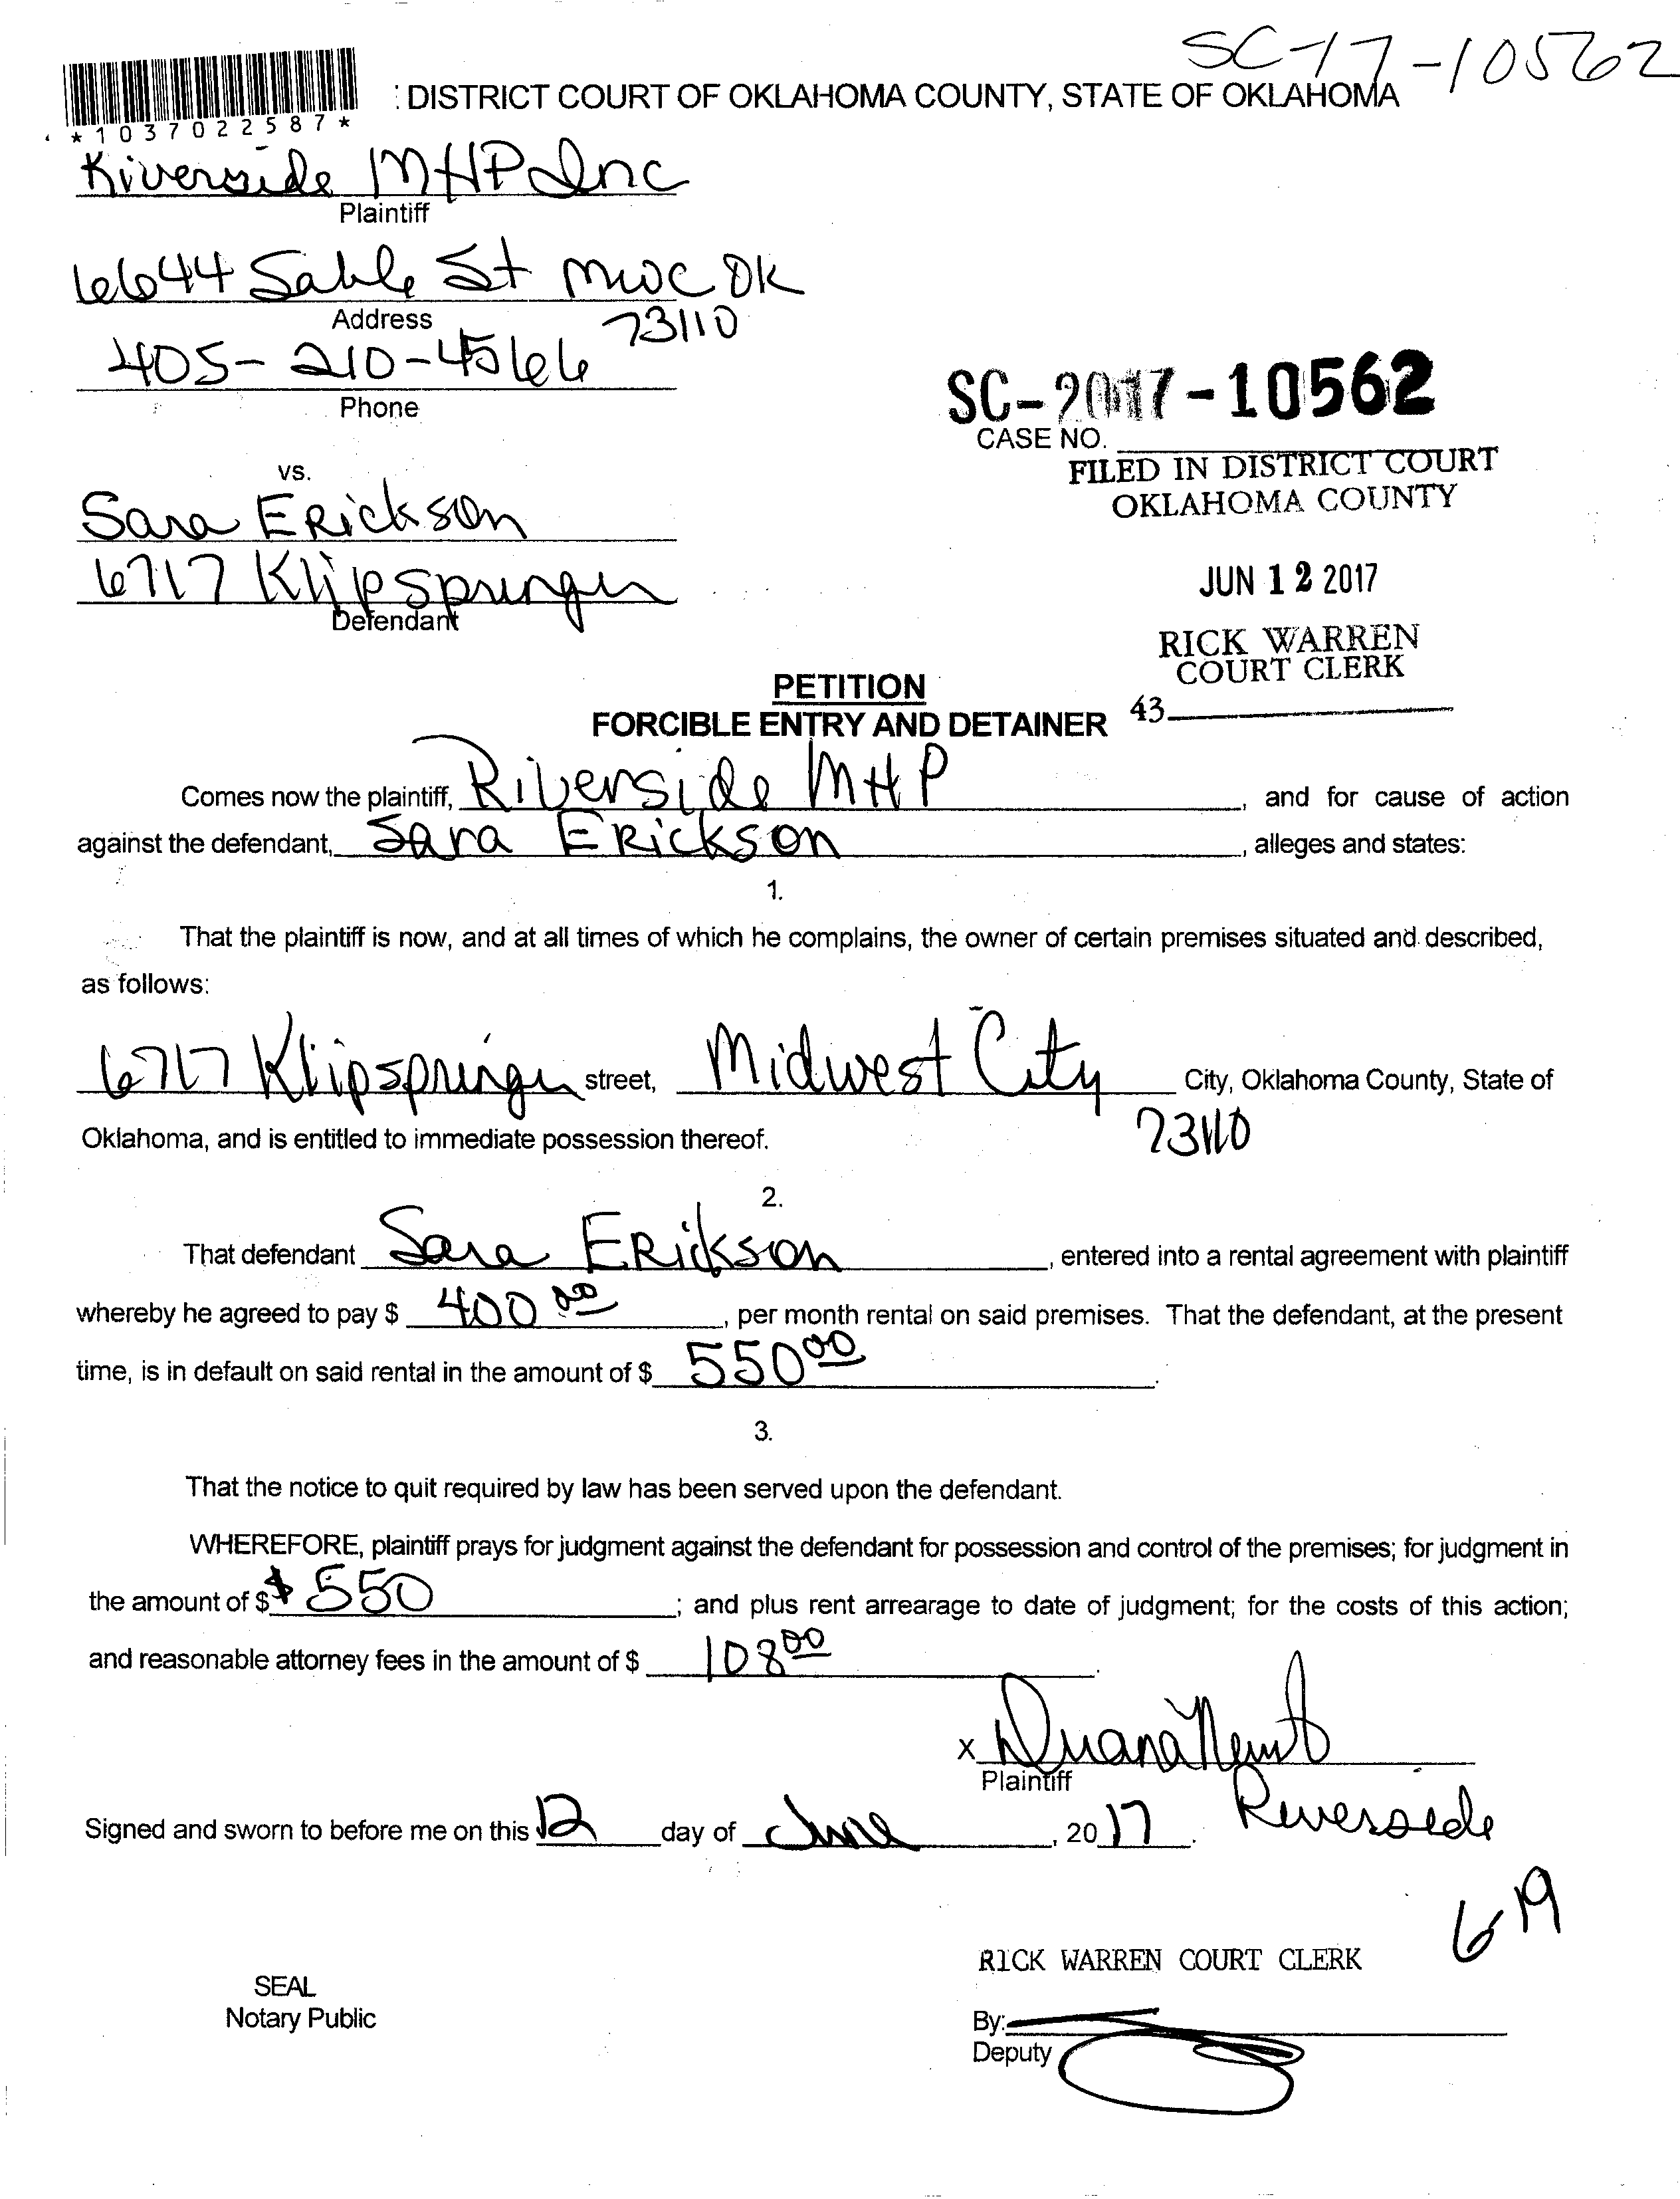 SC-17-10562
: DISTRICT COURT OF OKLAHOMA COUNTY, STATE OF OKLAHOMA
*1037022587*
Riverside MHP Inc
Plaintiff
6644 Sable St MWC OK
Address 73110
405-210-4566
Phone
SC-2017-10562
CASE NO.
FILED IN DISTRICT COURT
OKLAHOMA COUNTY
vs.
Sara Erickson
6717 Klipspringer
Defendant
JUN 12 2017
RICK WARREN
COURT CLERK
43
PETITION
FORCIBLE ENTRY AND DETAINER
Comes now the plaintiff, Riverside MHP, and for cause of action
against the defendant, Sara Erickson, alleges and states:
1.
That the plaintiff is now, and at all times of which he complains, the owner of certain premises situated and described,
as follows:
6717 Klipspringer street, Midwest City City, Oklahoma County, State of
73110
Oklahoma, and is entitled to immediate possession thereof.
2.
That defendant Sara Erickson, entered into a rental agreement with plaintiff
whereby he agreed to pay $ 400 00, per month rental on said premises. That the defendant, at the present
time, is in default on said rental in the amount of $ 550 00.
3.
That the notice to quit required by law has been served upon the defendant.
WHEREFORE, plaintiff prays for judgment against the defendant for possession and control of the premises; for judgment in
the amount of $ $ 550; and plus rent arrearage to date of judgment; for the costs of this action;
and reasonable attorney fees in the amount of $ 108 00.
x
Plaintiff
Riverside
Signed and sworn to before me on this 12 day of June, 2017.
6 19
RICK WARREN COURT CLERK
SEAL
Notary Public
By:
Deputy